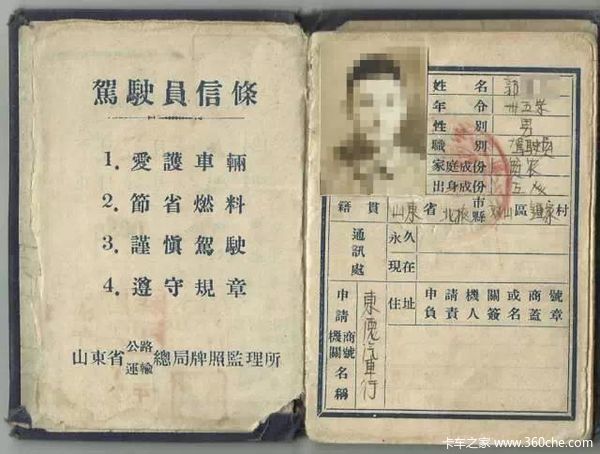 駕駛員信條
1.愛護車輛
2.節省燃料
3.謹慎駕駛
4.遵守規章
山東省公路運輸總局牌照監理所
姓名 郭
年令 卅五岁
性別 男
職別 駕駛員
家庭成份
出身成份
籍貫 山東省 市縣 區 村
通訊處 永久
現在
申請機關商號名稱 東 汽車行
住址
申請機關或商號
負責人簽名蓋章
卡车之家 www.360che.com